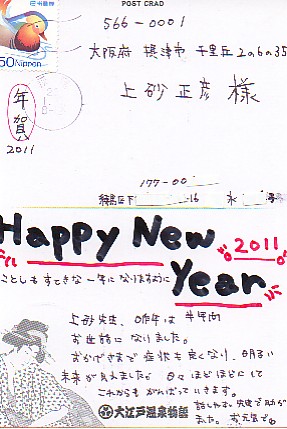 POST CRAD
50 Nippon
566-0001
大阪府 摂津市 千里丘 2の6の35
上砂 正彦 様
年賀
2011
177-00
練馬区下
16
Happy New
Year
2011
ことしも すてきな 一年に なりますように
上砂先生、昨年は 半年間
お世話に なりました。
おかげさまで 症状も 良くなり、明るい
未来が 見えました。 日々 ほどほどにして
これからも がんばって いきます。
大江戸温泉物語
お元気で。